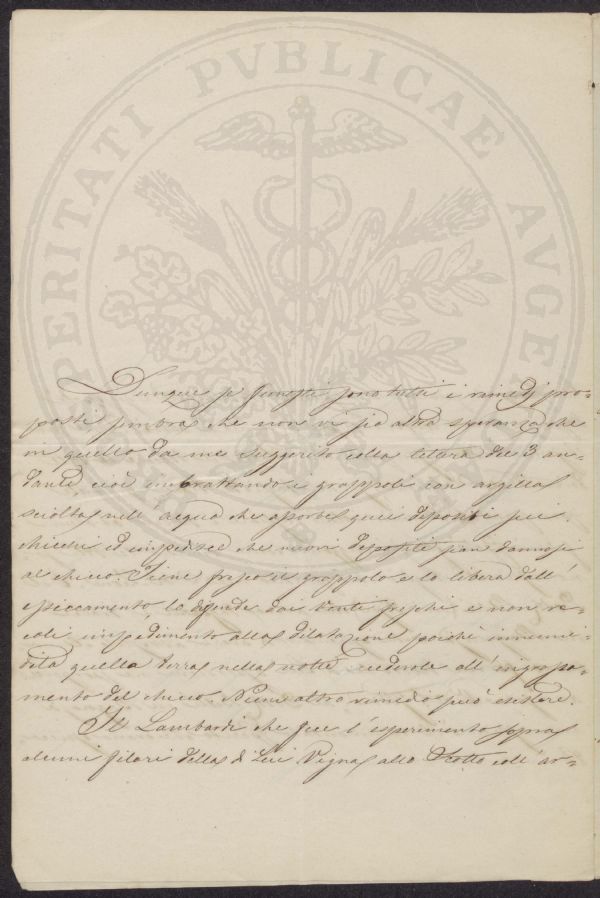 PROSPERITATI PVBLICAE AVGENDAE
Dunque se funesti sono tutti i rimedj pro=
posti sembra che non vi sia altra speranza che
in quello da me suggerito colla lettera del 3 an=
dante, cioè imbrattando i grappoli con argilla
sciolta nell'acqua che assorbe quei depositi sui
chicchi ed impedisce che nuovi depositi sian dannosi
al chicco. Tiene fresco il grappolo e lo libera dall'
essiccamento, lo difende dai venti freschi e non re=
ca impedimento alla dilatazione poichè inumi=
dita quella terra nella notte cederole all'ingrossa=
mento del chicco. Niun altro rimedio può esistere.
Il Lambardi che fece l'esperimento sopra
alcuni filari della di Lei Vigna allo Scotto coll'ar=